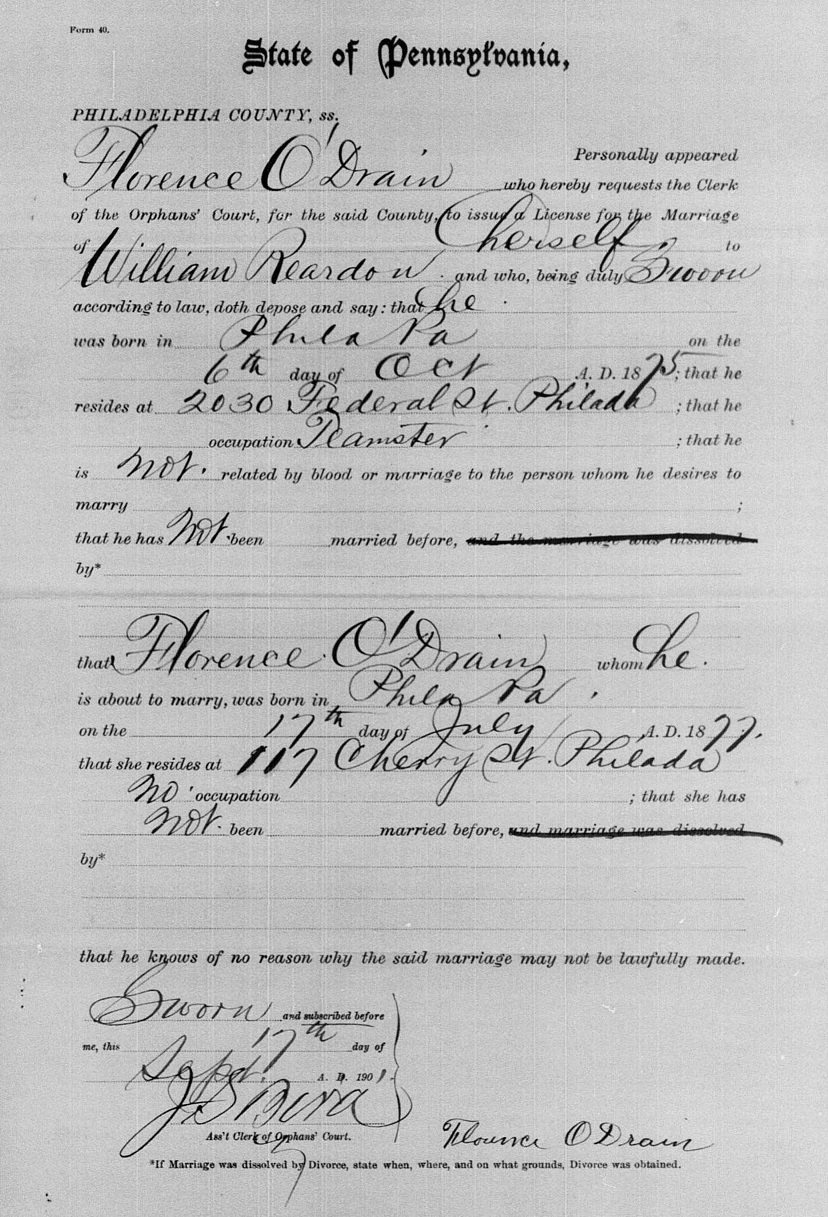 Form 40.
State of Pennsylvania,
PHILADELPHIA COUNTY, ss.
Personally appeared
Florence O'Drain who hereby requests the Clerk
of the Orphans' Court, for the said County, to issue a License for the Marriage
of herself to
William Reardon. and who, being duly Sworn
according to law, doth depose and say: that he.
was born in Phila Pa on the
6th day of Oct A. D. 1875; that he
resides at 2030 Federal St. Philada ; that he
occupation Teamster ; that he
is Not. related by blood or marriage to the person whom he desires to
marry ;
that he has Not. been married before, and the marriage was dissolved
by*
that Florence O'Drain whom he.
is about to marry, was born in Phila Pa.
on the 17th day of July A. D. 1877.
that she resides at 117 Cherry St. Philada
No occupation ; that she has
Not. been married before, and marriage was dissolved
by*
that he knows of no reason why the said marriage may not be lawfully made.
Sworn and subscribed before
me, this 17th day of
Sept. A. D. 1901.
Ass't Clerk of Orphans' Court.
Florence O Drain
*If Marriage was dissolved by Divorce, state when, where, and on what grounds, Divorce was obtained.